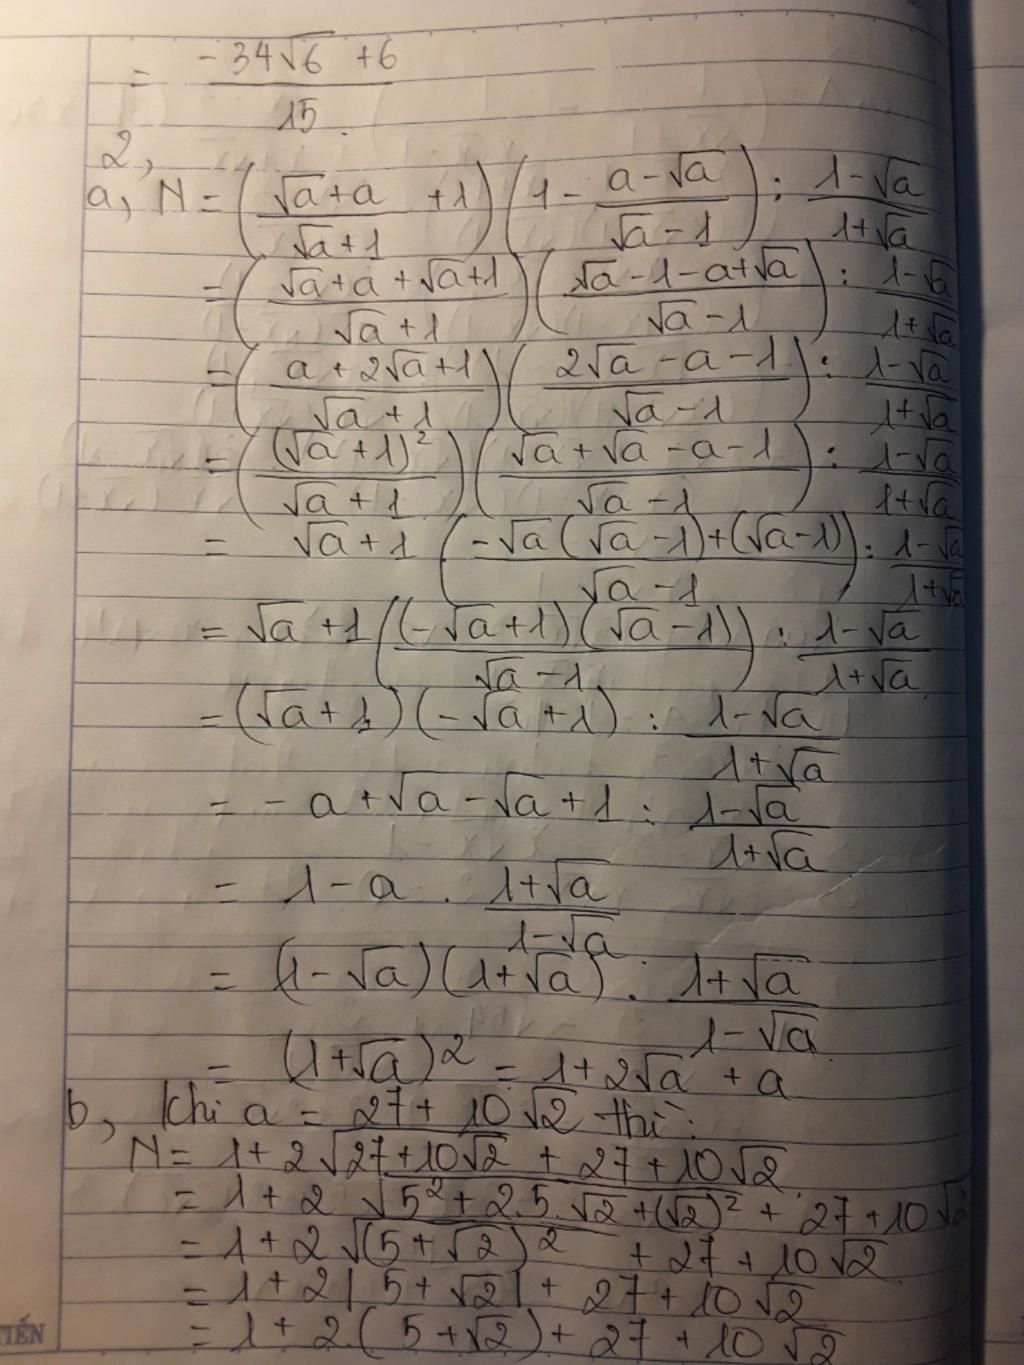 = (-34√6 + 6)/15.
2,
a, N = ((√a + a)/(√a + 1) + 1)(1 - (a - √a)/(√a - 1)) : (1 - √a)/(1 + √a)
= ((√a + a + √a + 1)/(√a + 1))((√a - 1 - a + √a)/(√a - 1)) : (1 - √a)/(1 + √a)
= ((a + 2√a + 1)/(√a + 1))((2√a - a - 1)/(√a - 1)) : (1 - √a)/(1 + √a)
= ((√a + 1)²/(√a + 1))((√a + √a - a - 1)/(√a - 1)) : (1 - √a)/(1 + √a)
= √a + 1 ((-√a(√a - 1) + (√a - 1))/(√a - 1)) : (1 - √a)/(1 + √a)
= √a + 1 (((-√a + 1)(√a - 1))/(√a - 1)) : (1 - √a)/(1 + √a)
= (√a + 1)(-√a + 1) : (1 - √a)/(1 + √a)
= - a + √a - √a + 1 : (1 - √a)/(1 + √a)
= 1 - a . (1 + √a)/(1 - √a)
= (1 - √a)(1 + √a) . (1 + √a)/(1 - √a)
= (1 + √a)² = 1 + 2√a + a
b, Khi a = 27 + 10√2 thì:
N = 1 + 2√(27 + 10√2) + 27 + 10√2
= 1 + 2√(5² + 2.5.√2 + (√2)²) + 27 + 10√2
= 1 + 2√((5 + √2)²) + 27 + 10√2
= 1 + 2|5 + √2| + 27 + 10√2
= 1 + 2.(5 + √2) + 27 + 10√2
TIẾN